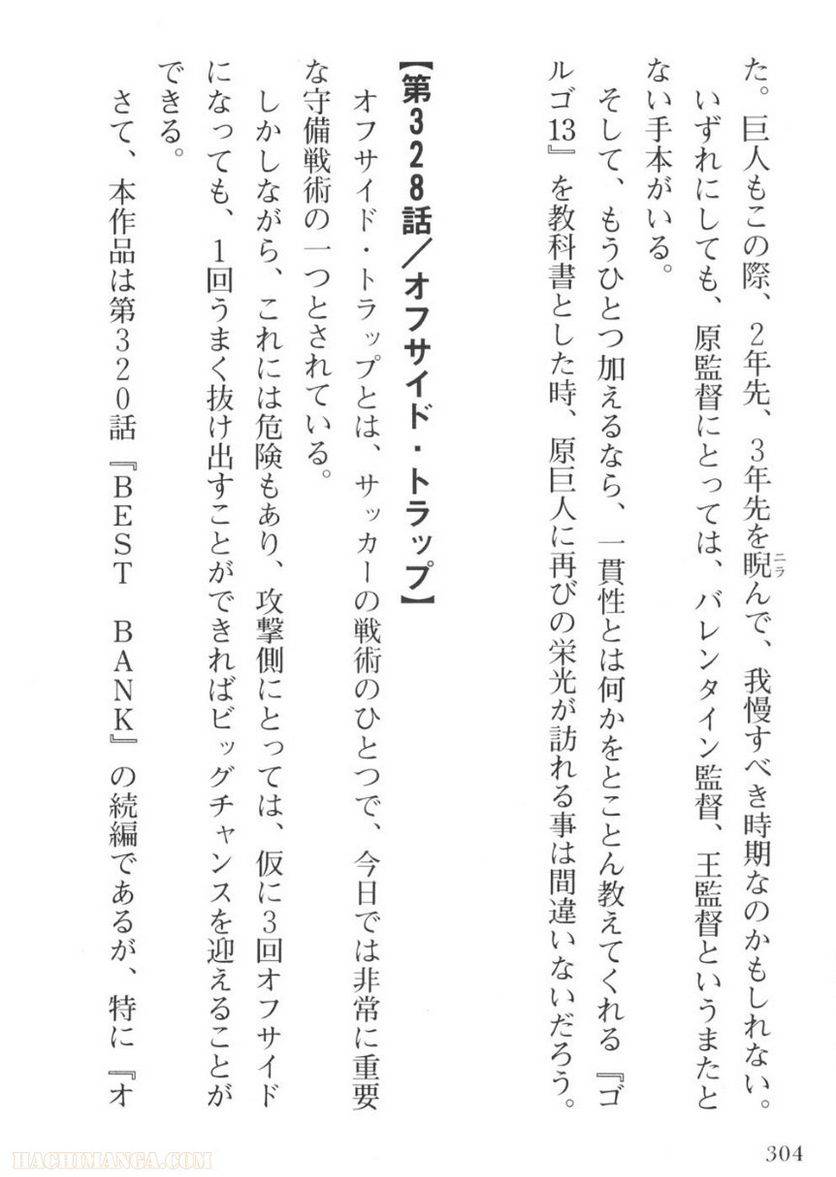 た。巨人もこの際、2年先、3年先を睨んで、我慢すべき時期なのかもしれない。
ニラ
いずれにしても、原監督にとっては、バレンタイン監督、王監督というまたと
ない手本がいる。
そして、もうひとつ加えるなら、一貫性とは何かをとことん教えてくれる『ゴ
ルゴ13』を教科書とした時、原巨人に再びの栄光が訪れる事は間違いないだろう。
【第328話／オフサイド・トラップ】
オフサイド・トラップとは、サッカーの戦術のひとつで、今日では非常に重要
な守備戦術の一つとされている。
しかしながら、これには危険もあり、攻撃側にとっては、仮に3回オフサイド
になっても、1回うまく抜け出すことができればビッグチャンスを迎えることが
できる。
さて、本作品は第320話『BEST BANK』の続編であるが、特に『オ
304
HACHIMANGA.COM